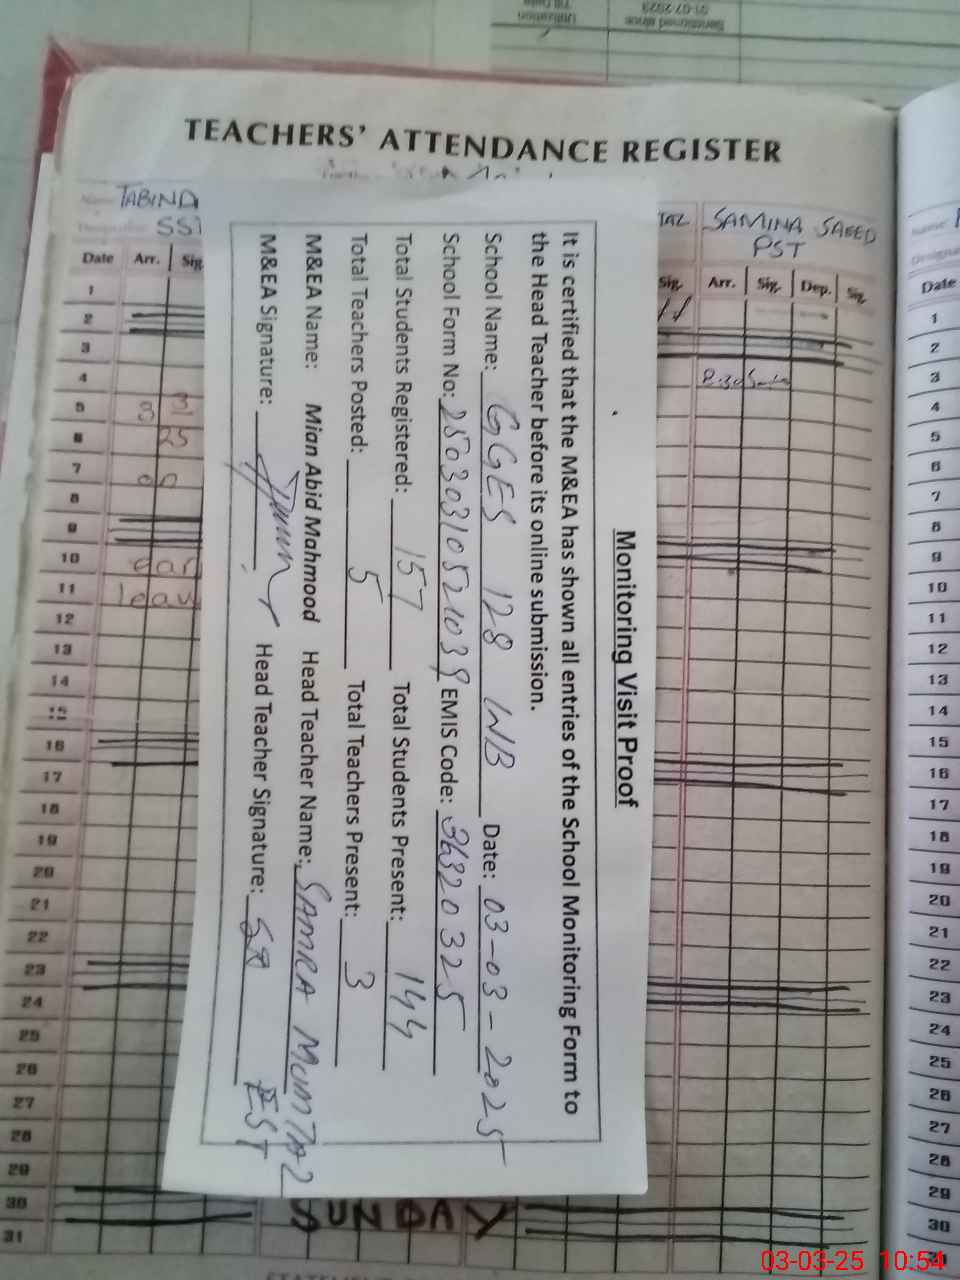 TEACHERS' ATTENDANCE REGISTER
TABIND
SST
TAZ
SAMINA SAEED
PST
Date Arr. Sig. Sig. Arr. Sig. Dep. Sig.
Monitoring Visit Proof
It is certified that the M&EA has shown all entries of the School Monitoring Form to
the Head Teacher before its online submission.
School Name: GGES 128 WB Date: 03-03-2025
School Form No: 25030310521039 EMIS Code: 36320325
Total Students Registered: 157 Total Students Present: 144
Total Teachers Posted: 5 Total Teachers Present: 3
M&EA Name: Mian Abid Mahmood Head Teacher Name: SAMRA MUMTAZ
M&EA Signature: Head Teacher Signature: EST
1
2
3
4
5
6
7
8
9
10
11
12
13
14
15
16
17
18
19
20
21
22
23
24
25
26
27
28
29
30
31
SUNDAY
Name:
Date
1
2
3
4
5
6
7
8
9
10
11
12
13
14
15
16
17
18
19
20
21
22
23
24
25
26
27
28
29
30
Utilization
Till Date
Sanctioned since
01-07-2023
03-03-25 10:54